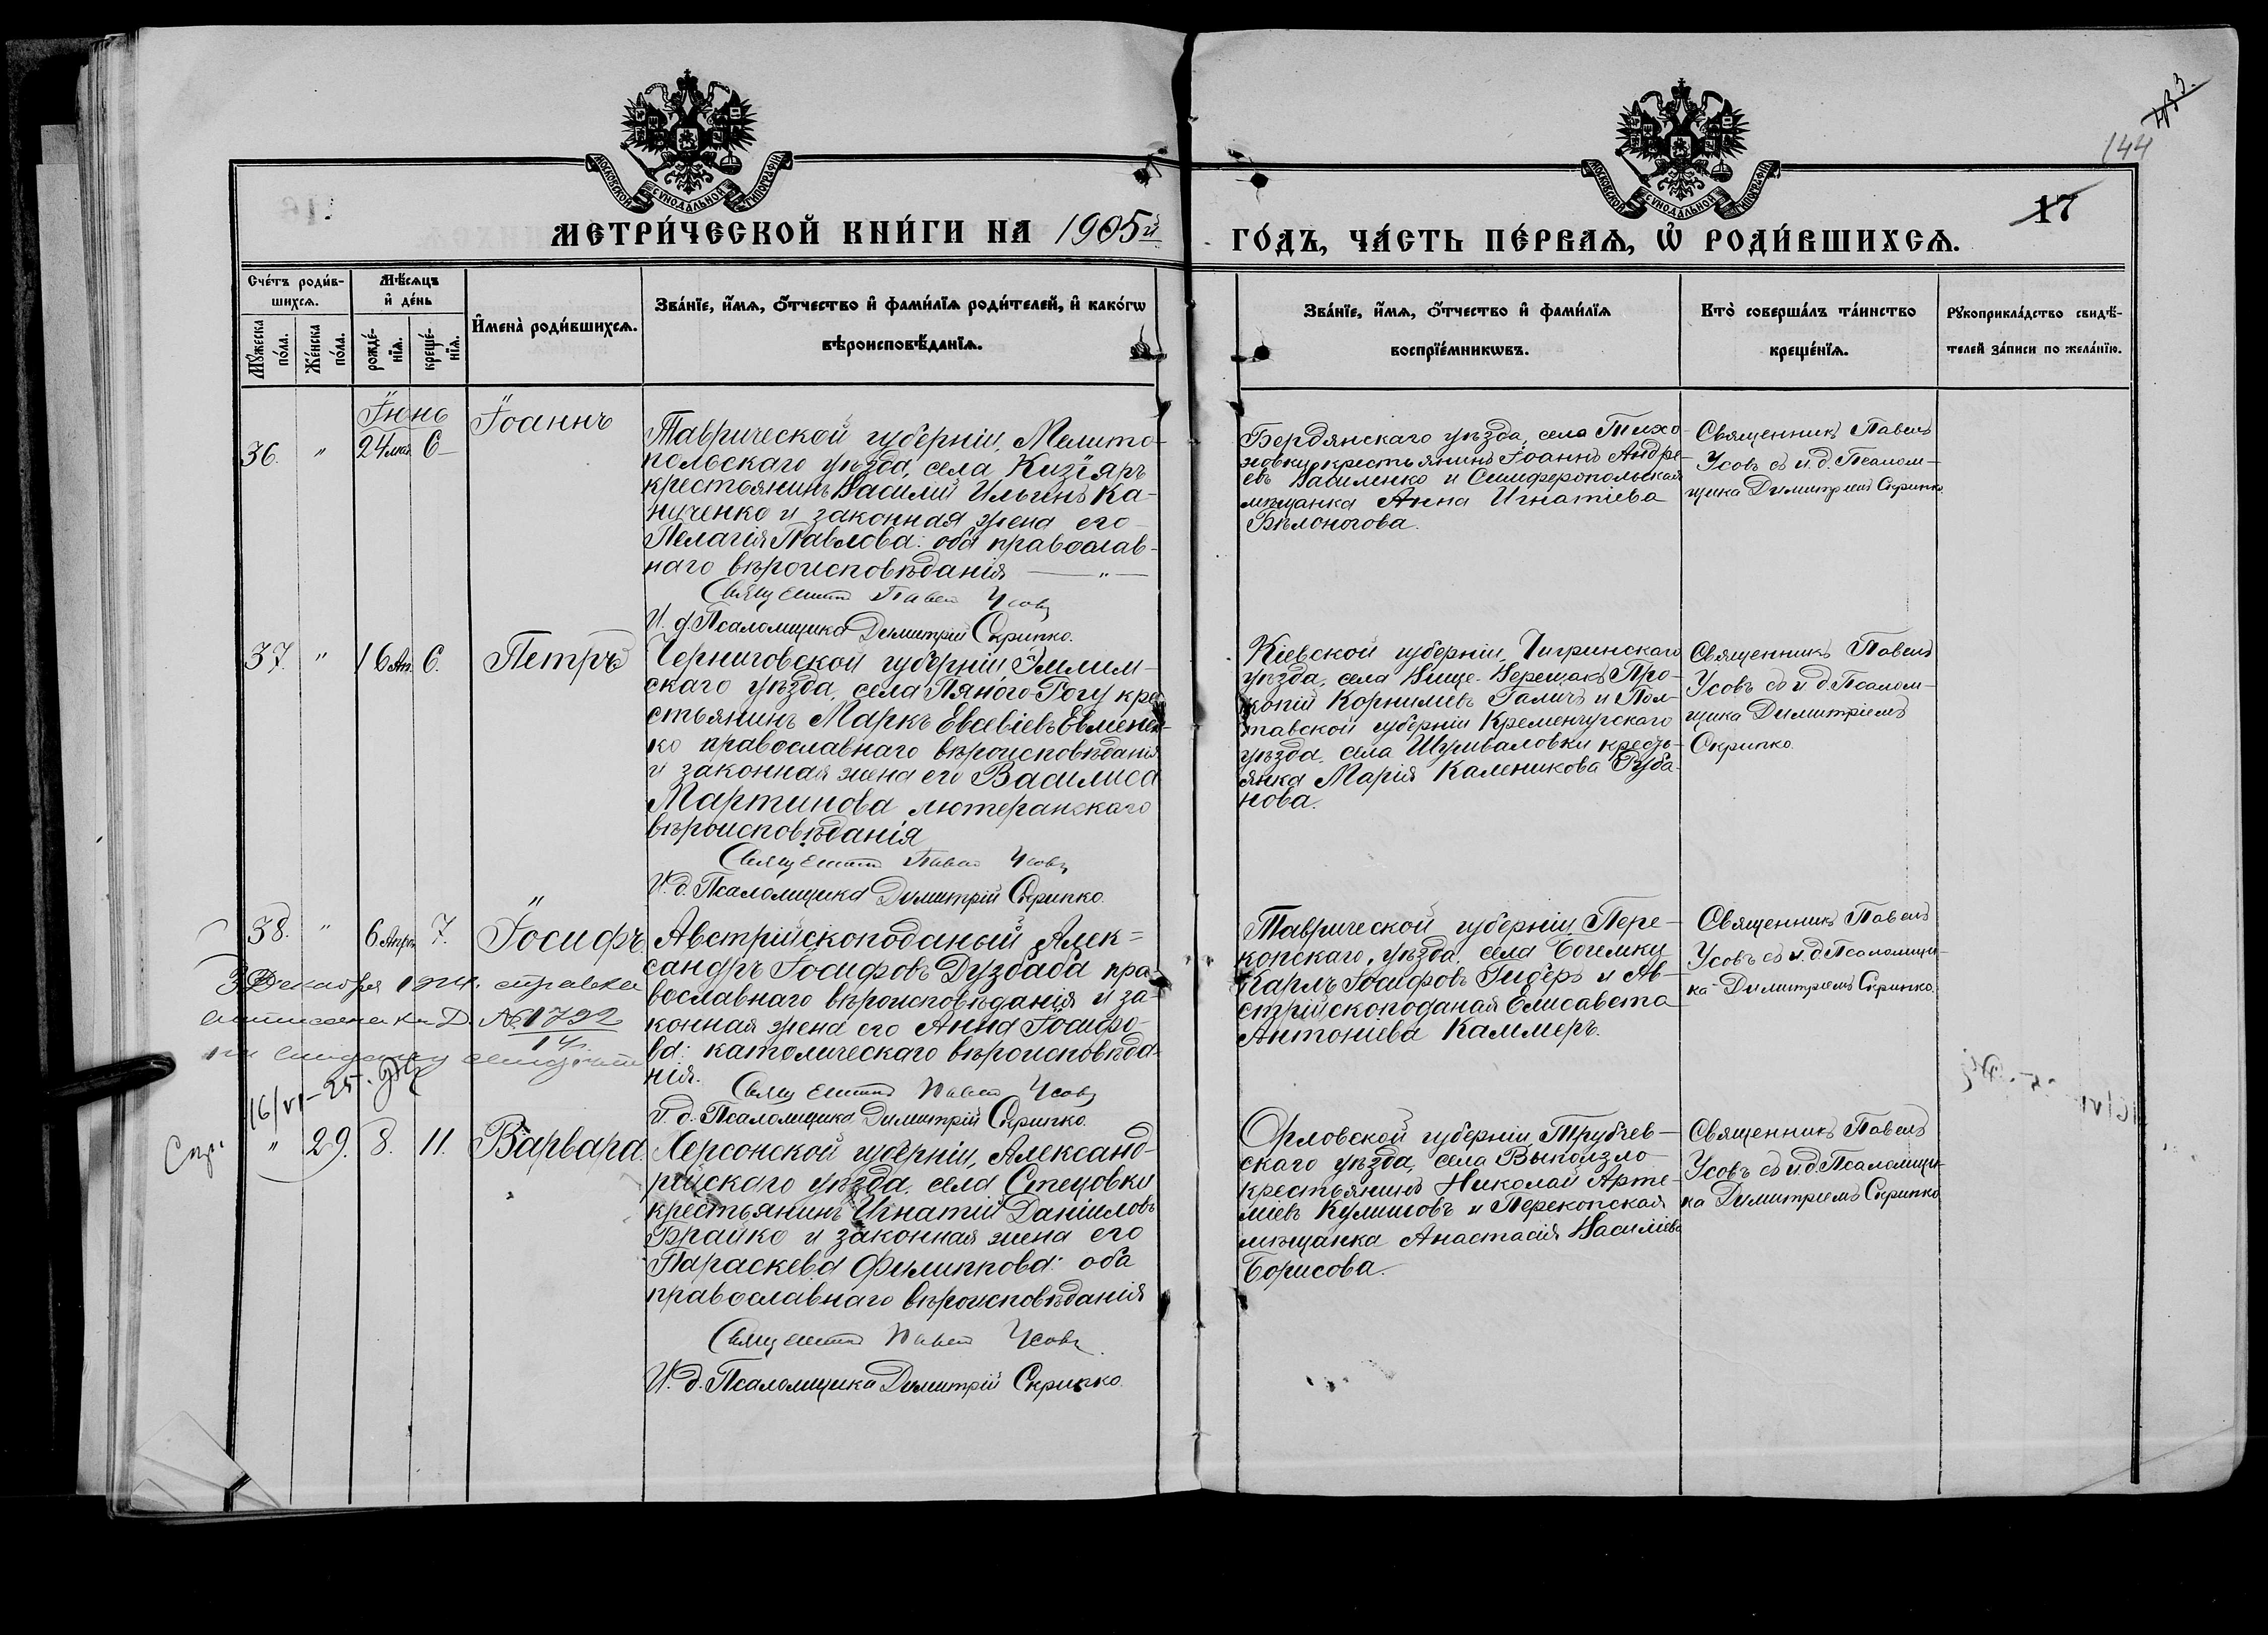 143.
144
17
МОСКОВСКОЙ СѴНОДАЛЬНОЙ ТИПОГРАФІИ
МОСКОВСКОЙ СѴНОДАЛЬНОЙ ТИПОГРАФІИ
МЕТРИ́ЧЕСКОЙ КНИ́ГИ НА 1905й
ГО́ДЪ, ЧА́СТЬ ПЕ́РВАѦ, Ѡ҆ РОДИ́ВШИХСѦ.
Сче́тъ роди́в-
шихсѧ.
Мꙋ́жеска по́ла.
Же́нска по́ла.
Мѣ́сѧцъ
и҆ де́нь
рожде́-
нїѧ.
креще́-
нїѧ.
И҆мена̀ роди́вшихсѧ.
Зва́нїе, и҆́мѧ, ѻ҆́тчество и҆ фами́лїѧ роди́телей, и҆ како́гѡ
вѣроисповѣ́данїѧ.
Зва́нїе, и҆́мѧ, ѻ҆́тчество и҆ фами́лїѧ
воспрїе́мникѡвъ.
Кто̀ соверша́лъ та́инство
креще́нїѧ.
Рꙋкоприкла́дство свидѣ́-
телей за́писи по жела́нїю.
Іюнь
36. " 24 мая 6 Іоаннъ
Таврической губерніи, Мелито-
польскаго уѣзда, села Кизіяръ
крестьянинъ Василій Ильинъ Ка-
нученко и законная жена его
Пелагія Павлова: оба православ-
наго вѣроисповѣданія — " —
Священникъ Павелъ Усовъ
И. д. Псаломщика Димитрій Скрипко.
Бердянскаго уѣзда, села Тихо-
новки, крестьянинъ Іоаннъ Андре-
евъ Василенко и Симферопольская
мѣщанка Анна Игнатіева
Бѣлоногова.
Священникъ Павелъ
Усовъ съ и. д. Псалом-
щика Димитріемъ Скрипко.
37. " 16 Ап. 6. Петръ
Черниговской губерніи,
скаго уѣзда, села Пянаго-Рогу кре-
стьянинъ Маркъ Евсевіевъ Евменен-
ко православнаго вѣроисповѣданія
и законная жена его Василиса
Мартинова лютеранскаго
вѣроисповѣданія
Священникъ Павелъ Усовъ
И. д. Псаломщика Димитрій Скрипко.
Кіевской губерніи, Чигринскаго
уѣзда, села Вище-Верещакъ Про-
копій Корниліевъ Галичъ и Пол-
тавской губерніи Кременчугскаго
уѣзда, села Шушваловки кресть-
янка Марія Каленикова Руба-
нова.
Священникъ Павелъ
Усовъ съ и. д. Псалом-
щика Димитріемъ
Скрипко.
38. " 6 Апрѣл 7. Іосифъ.
Австрійскоподаный Алек-
сандръ Іосифовъ Дузбаба пра-
вославнаго вѣроисповѣданія и за-
конная жена его Анна Іосифо-
ва: католическаго вѣроисповѣда-
нія.
Священникъ Павелъ Усовъ
И. д. Псаломщика Димитрій Скрипко.
Таврической губерніи, Пере-
копскаго, уѣзда, села Богемки
Карлъ Іосифовъ Гидеръ и Ав-
стрійскоподаная Елисавета
Антоніева Каммеръ.
Священникъ Павелъ
Усовъ съ и. д. Псаломщи-
ка Димитріемъ Скрипко.
Декабря справка
№ 1792
14
16/VI–25.
Спр.
" 29. 8. 11. Варвара.
Херсонской губерніи, Александ-
рійскаго уѣзда, села Стецовки
крестьянинъ Игнатій Даніиловъ
Брайко и законная жена его
Параскева Филиппова: оба
православнаго вѣроисповѣданія
Священникъ Павелъ Усовъ.
И. д. Псаломщика Димитрій Скрипко.
Орловской губерніи, Трубчев-
скаго уѣзда, села
крестьянинъ Николай Арте-
міевъ Кулишовъ и Перекопская
мѣщанка Анастасія Василіева
Борисова.
Священникъ Павелъ
Усовъ съ и. д. Псаломщи-
ка Димитріемъ Скрипко.